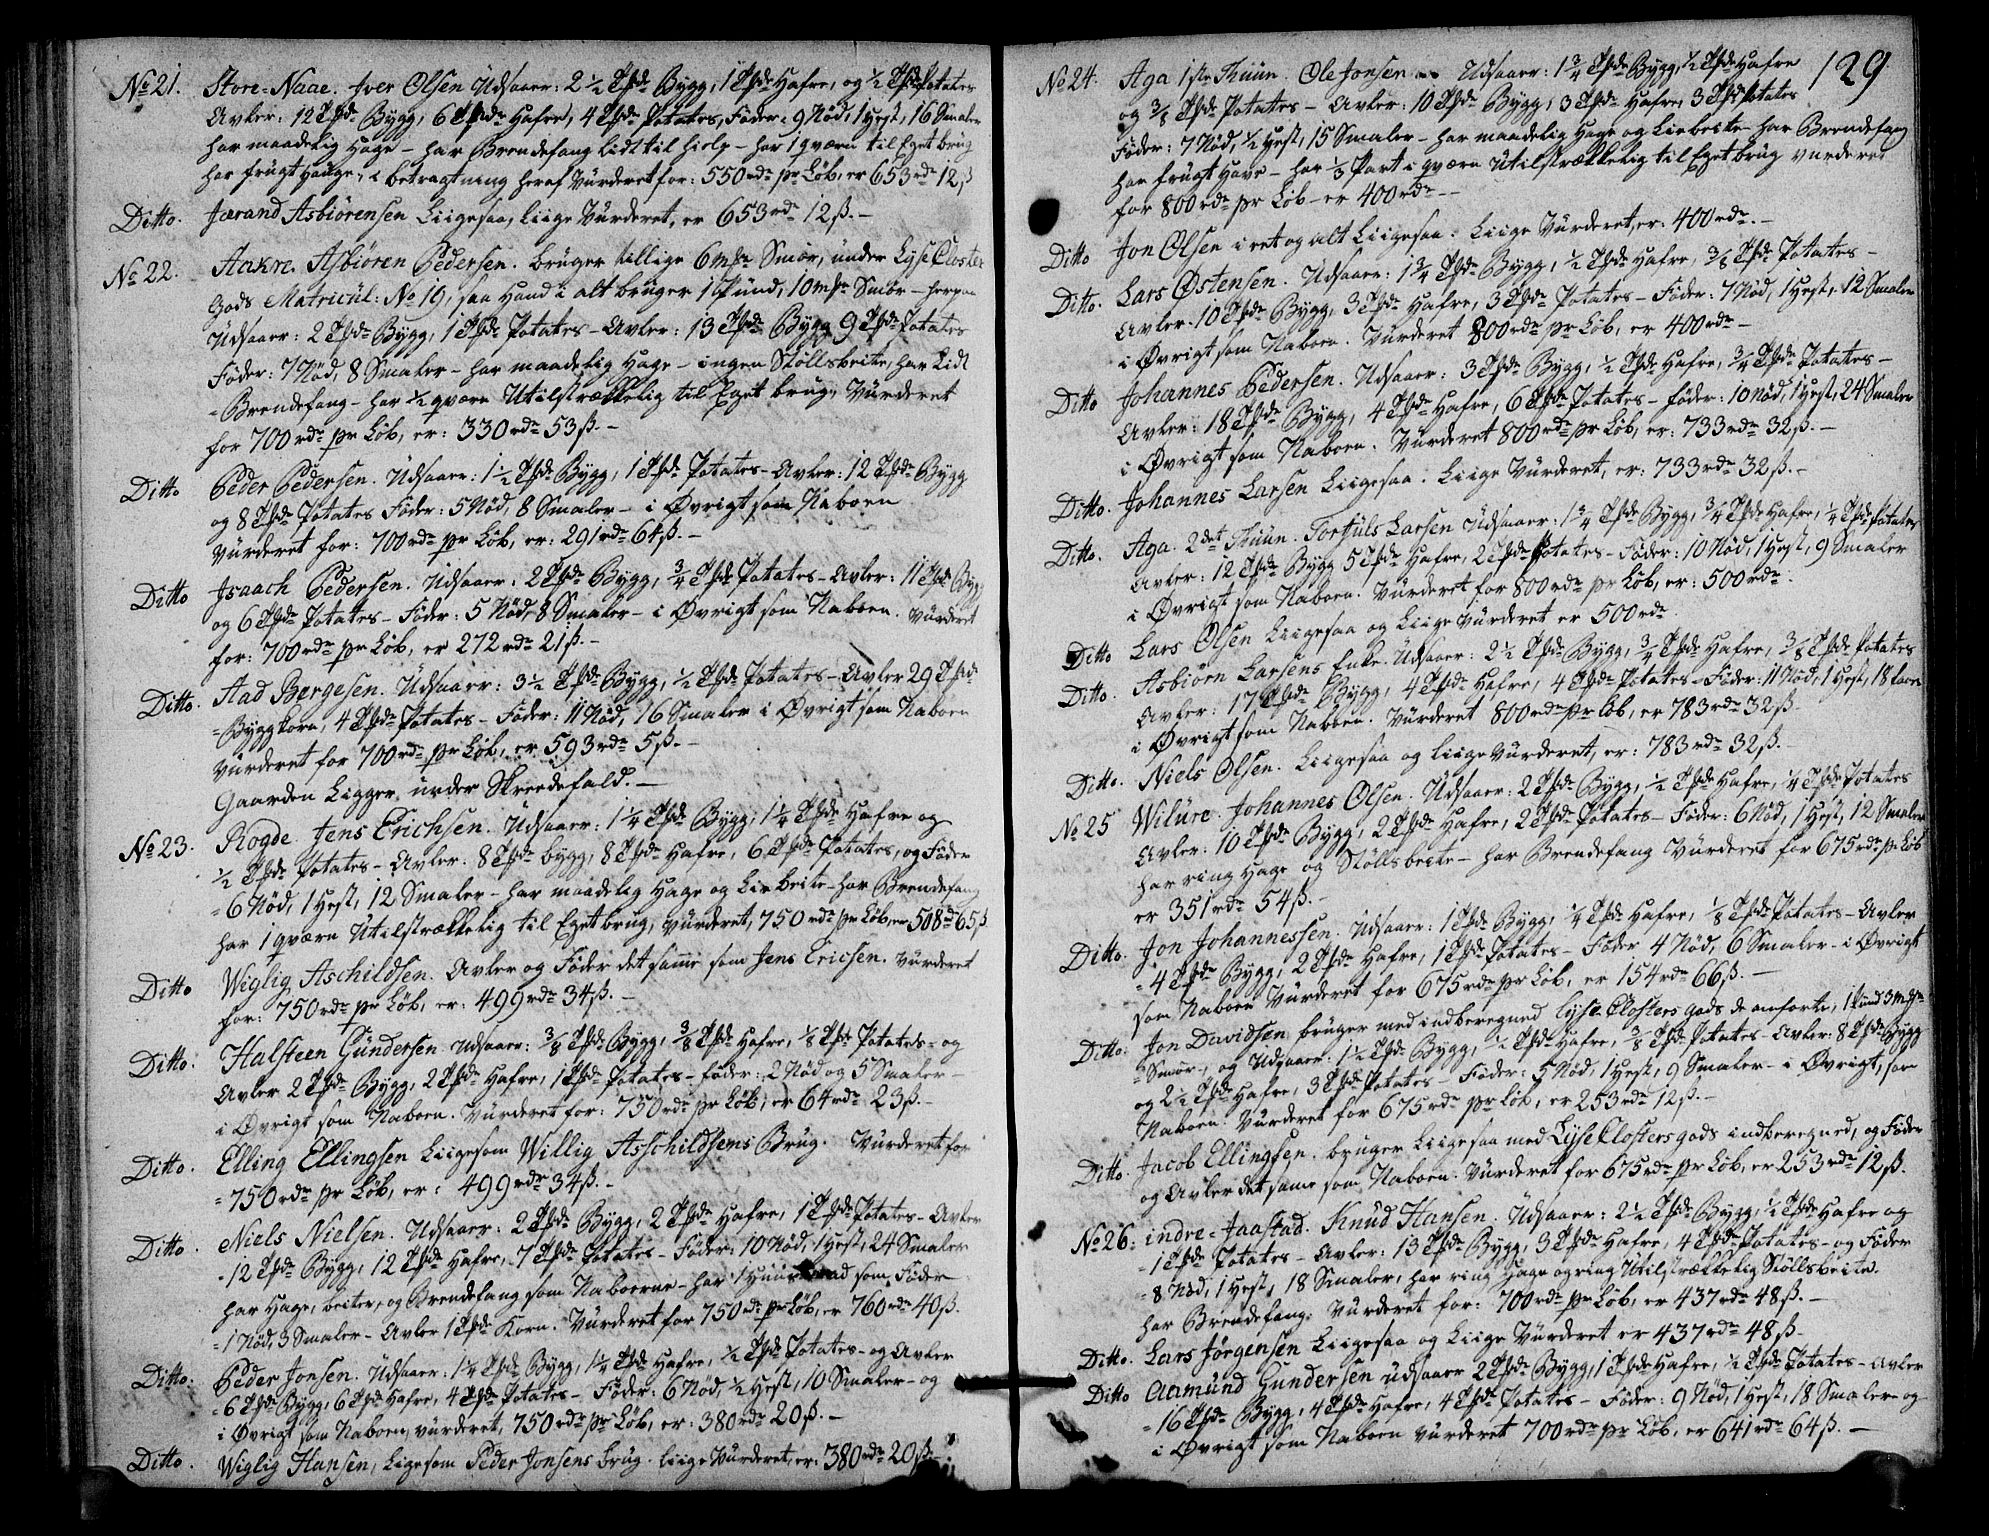 No 21. Store-Naae. Iver Olsen Udsaaer: 2 1/2 Tønde Bygg, 1 Tønde Hafre, og 1/2 Tønde Potates
Avler: 12 Tønde Bygg, 6 Tønde Hafre, 4 Tønde Potates, Føder: 9 Nød, 1 Hest, 16 Smaler
har maadelig Hage - har Brendefang lidt til hielp - har 1 qværn til Eget brug
har frugt Hauge, i betragtning heraf Vürderet for: 550 rdr pr Løb, er 653 rdr 12 ß
Ditto. Jærand Asbiörensen Liigesaa, Liige Vürderet, er 653 rdr 12 ß. -
No 22. Aakre. Asbiören Pedersen. brüger tillige 6 mrk Smör, under Lyse Closter
Gods Matricül: No 19, saa Hand i alt brüger 1 Pünd, 10 mrk Smör - herpaa
Udsaaer: 2 Tønde Bygg, 1 Tønde Potates - Avler: 13 Tønde Bygg 9 Tønde Potates
Føder: 7 Nød, 8 Smaler - har maadelig Hage - ingen Stöllsbeite, har Lidt
Brendefang - har 1/2 qværn Utilstrækkelig til Eget brug, Vürderet
for 700 rdr pr Løb, er: 330 rdr 53 ß. -
Ditto Peder Pedersen. Udsaaer: 1 1/2 Tønde Bygg, 1 Tønde Potates - Avler: 12 Tønde Bygg
og 8 Tønde Potates Føder: 5 Nød, 8 Smaler - i Øvrigt som Naboen
Vürderet for: 700 rdr pr Løb, er: 291 rdr 64 ß. -
Ditto Isaach Pedersen. Udsaaer: 2 Tønde Bygg, 3/4 Tønde Potates - Avler: 11 Tønde Bygg
og 6 Tønde Potates - Føder: 5 Nød, 8 Smaler - i Øvrigt som Naboen. Vürderet
for: 700 rdr pr Løb, er 272 rdr 21 ß. -
Ditto. Aad Børgesen. Udsaaer: 3 1/2 Tønde Bygg, 1/2 Tønde Potates - Avler 29 Tønde
Byggkorn, 4 Tønde Potates - Føder: 11 Nød, 16 Smaler i Øvrigt som Naboen
Vürderet for 700 rdr pr Løb, er 593 rdr 5 ß. -
Gaarden Ligger under Skreedefald. -
No 23. Rogde. Jens Erichsen. Udsaaer: 1 1/4 Tønde Bygg, 1 1/4 Tønde Hafre og
1/2 Tønde Potates - Avler: 8 Tønde bygg, 8 Tønde Hafre, 6 Tønde Potates, og Føder
6 Nød, 1 Hest, 12 Smaler - har maadelig Hage og Liebeite - har Brendefang
har 1 qværn Utilstrækkelig til Eget brug, vürderet, 750 rdr pr Løb, er 508 rd 65 ß
Ditto Wiglig Aschildsen. Avler og Føder det samme som Jens Ericsen. Vürderet
for: 750 rdr pr Løb, er: 499 rdr 34 ß. -
Ditto. Halsteen Gündersen Udsaaer: 3/8 Tønde Bygg, 3/8 Tønde Hafre, 1/8 Tønde Potates - og
Avler 2 Tønde Bygg, 2 Tønde Hafre, 1 Tønde Potates - føder: 2 Nød og 5 Smaler -
i Øvrigt som Naboen. Vürderet for: 750 rdr pr Løb, er 64 rdr 23 ß. -
Ditto. Elling Ellingsen Liigesom Willig Asschildsens Brüg. Vürderet for
750 rdr pr Løb, er: 499 rdr 34 ß. -
Ditto. Niels Nielsen. Udsaaer: 2 Tønde Bygg, 2 Tønde Hafre, 1 Tønde Potates - Avler
12 Tønde Bygg, 12 Tønde Hafre, 7 Tønde Potates - Føder: 10 Nød, 1 Hest, 24 Smaler
har Hage, beiter, og Brendefang som Naboerne - har 1 som Føder
1 Nød, 3 Smaler - Avler 1 Tønde Korn. Vürderet for 750 rdr pr Løb, er 760 rdr 40 ß.
Ditto. Peder Jonsen. Udsaaer: 1 1/4 Tønde Bygg, 1 1/4 Tønde Hafre, 1/2 Tønde Potates - og Avler
6 Tønde Bygg, 6 Tønde Hafre, 4 Tønde Potates - Føder: 6 Nød, 1/2 Hest, 10 Smaler - og
i Øvrigt som Naboen, vürderet, 750 rdr pr Løb, er: 380 rdr 20 ß. -
Ditto. Wiglig Hansen, Ligesom Peder Jonsens brüg. liige Vürderet, er: 380 rdr 20 ß.
129
No 24. Aga 1ste Thüün. Ole Jonsen - Udsaaer: 1 3/4 Tønde Bygg, 1/2 Tønde Hafre
og 3/8 Tønde Potates - Avler: 10 Tønde Bygg, 3 Tønde Hafre, 3 Tønde Potates
Føder: 7 Nød, 1/2 Hest, 15 Smaler - har maadelig Hage og Liebeite har Brendefang
har frugt Have - har 1/3 Part i qværn Utilstrækkelig til Eget brüg vurderet
for 800 rdr pr Løb - er 400 rdr - -
Ditto Jon Olsen i eet og alt Liigesaa. Liige Vürderet, er: 400 rdr. -
Ditto. Lars Østensen. Udsaaer: 1 3/4 Tønde Bygg, 1/2 Tønde Hafre, 3/8 Tønde Potates -
Avler: 10 Tønde Bygg, 3 Tønde Hafre, 3 Tønde Potates - Føder: 7 Nød, 1 Hest, 12 Smaler
i Øvrigt som Naboen. Vürderet 800 rdr pr Løb, er 400 rdr -
Ditto Johannes Pedersen. Udsaaer: 3 Tønde Bygg, 1/2 Tønde Hafre, 3/4 Tønde Potates -
Avler: 18 Tønde Bygg, 4 Tønde Hafre, 6 Tønde Potates - føder: 10 Nød, 1 Hest, 24 Smaler
i Øvrigt som Naboen. Vürderet 800 rdr pr Løb, er: 733 rdr 32 ß. -
Ditto. Johannes Larsen Liigesaa. Liige Vürderet, er: 733 rdr 32 ß. -
Ditto. Aga. 2det Thüün. Torkjuls Larsen Udsaaer: 1 3/4 Tønde Bygg, 3/4 Tønde Hafre, 1/4 Tønde Potates
Avler: 12 Tønde Bygg 5 Tønde Hafre, 2 Tønde Potates - Føder: 10 Nød, 1 Hest, 9 Smaler
i Øvrigt som Naboen. Vürderet for 800 rdr pr Løb, er: 500 rdr.
Ditto Lars Olsen Liigesaa og Liige Vürderet er 500 rdr.
Ditto. Asbiörn Larsens Enke. Udsaaer: 2 1/2 Tønde Bygg, 3/4 Tønde Hafre, 3/8 Tønde Potates
Avler: 17 Tønde Bygg, 4 Tønde Hafre, 4 Tønde Potates - Føder: 11 Nød, 1 Hest, 18 faar
i Øvrigt som Naboen. Vürderet 800 rdr pr Løb, er 783 rdr 32 ß.
Ditto. Niels Olsen. Liigesaa og Liige Vürderet, er: 783 rdr 32 ß.
No 25 Wilüre. Johannes Olsen. Udsaaer: 2 Tønde Bygg, 1/2 Tønde Hafre, 1/4 Tønde Potates
Avler: 10 Tønde Bygg, 2 Tønde Hafre, 2 Tønde Potates - Føder: 6 Nød, 1 Hest, 12 Smaler
har ring Hage og Stöllsbeite - har Brendefang Vürderet for 675 rdr pr Løb
er 351 rdr 54 ß. -
Ditto. Jon Johannessen. Udsaaer: 1 Tønde Bygg, 1/4 Tønde Hafre, 1/8 Tønde Potates - Avler
4 Tønde Bygg, 2 Tønde Hafre, 1 Tønde Potates - Føder 4 Nød, 6 Smaler - i Øvrigt
som Naboen Vürderet for 675 rdr pr Løb, er 154 rdr 66 ß. -
Ditto. Jon Davidsen brüger med indberegned Lyse Closters gods de anførte, 1 Pünd 3 mrk
Smör -, og Udsaaer: 1 1/2 Tønde Bygg, 1/2 Tønde Hafre, 3/8 Tønde Potates - Avler: 8 Tønde Bygg
og 2 1/2 Tønde Hafre, 3 Tønde Potates - Føder: 5 Nød, 1 Hest, 9 Smaler - i Øvrigt, som
Naboen. Vürderet for 675 rdr pr Løb, er 253 rdr 12 ß. -
Ditto. Jacob Ellingsen. brüger Liigesaa med Lyse Closters gods indberegned, og Føder
og Avler det same som Naboen. Vürderet for 675 rdr pr Løb, er 253 rdr 12 ß.
No 26. indre-Jaastad. Knüd Hansen. Udsaaer: 2 1/2 Tønde Bygg, 1/2 Tønde Hafre og
1 Tønde Potates - Avler: 13 Tønde Bygg, 3 Tønde Hafre, 4 Tønde Potates - og Føder
8 Nød, 1 Hest, 18 Smaler, har ring Hage og ring Utilstrækkelig Stöllsbeite.
har Brendefang. Vürderet for: 700 rdr pr Løb, er 437 rdr 48 ß. -
Ditto. Lars Jörgensen Liigesaa og Liige Vürderet er 437 rdr 48 ß -
Ditto Aamünd Gundersen üdsaaer 2 Tønde Bygg, 1 Tønde Hafre, 1/2 Tønde Potates - Avler
16 Tønde Bygg, 4 Tønde Hafre, 4 Tønde Potates - Føder: 9 Nød, 1 Hest, 18 Smaler og
i Øvrigt som Naboen vürderet 700 rdr pr Løb, er 641 rdr 64 ß. -